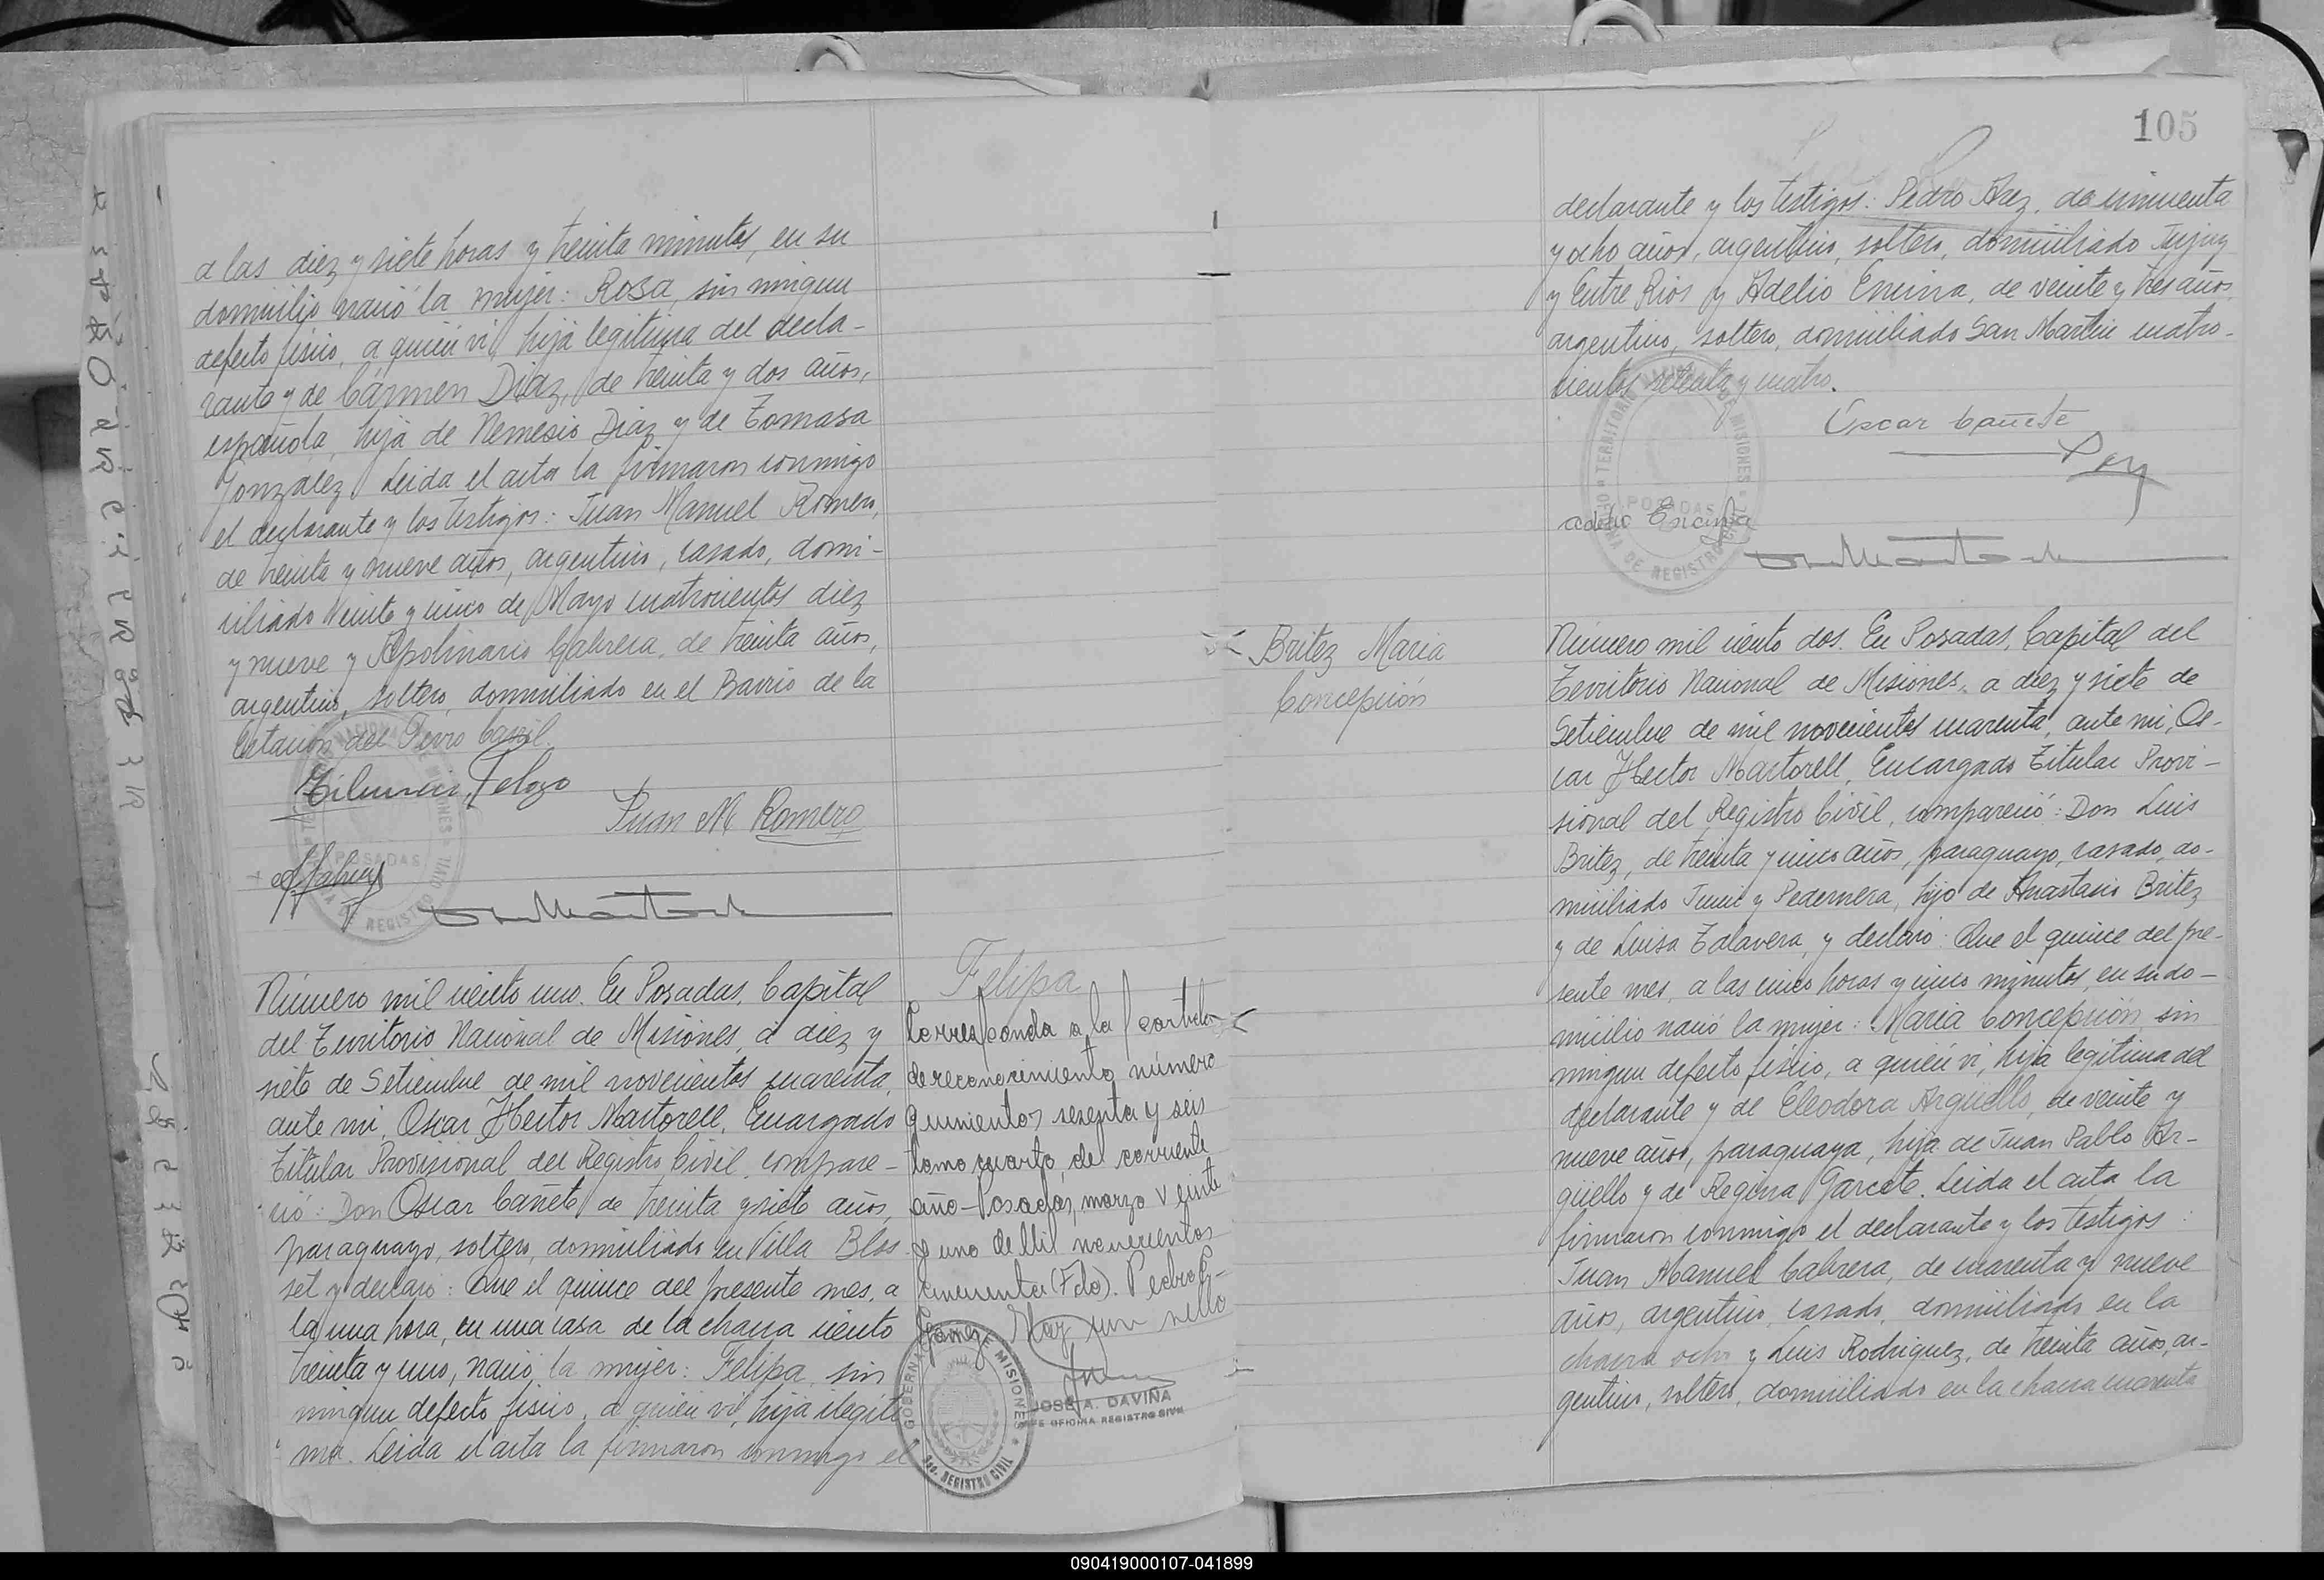 a las diez y siete horas y treinta minutos, en su
domicilio nació la mujer: Rosa, sin ningun
defecto físico, a quién vi, hija legítima del decla-
rante y de Cármen Diaz, de treinta y dos años,
española, hija de Nemesio Diaz y de Tomasa
Gonzalez. Leida el acta la firmaron conmigo
el declarante y los testigos: Juan Manuel Romero,
de treinta y nueve años, argentino, casado, domi-
ciliado Veinte y cinco de Mayo cuatrocientos diez
y nueve y Apolinario Cabrera, de treinta años,
argentino, soltero, domiciliado en el Barrio de la
Estación del Ferro Carril.
Juan M Romero
POSADAS
Número mil ciento uno. En Posadas, Capital
del Territorio Nacional de Misiones, a diez y
siete de Setiembre de mil novecientos cuarenta,
ante mi, Oscar Hector Martorell, Encargado
Titular Provisional del Registro Civil, compare-
ció: Don Oscar Cañete de treinta y siete años,
paraguayo, soltero, domiciliado en Villa Blos-
set y declaró: Que el quince del presente mes, a
la una hora, en una casa de la chacra ciento
treinta y uno, nació la mujer: Felipa, sin
ningun defecto físico, a quién vi, hija ilegíti-
ma. Leida el acta la firmaron conmigo el
Felipa
Corresponda a la partida
de reconocimiento número
quinientos sesenta y seis
tomo cuarto, del corriente
año- Posadas, marzo veinte
y uno de Mil novecientos
cincuenta (Fdo). Pedro G-
Gomez Hay un sello
JOSE A. DAVIÑA
JEFE OFICINA REGISTRO CIVIL
GOBERNACION DE MISIONES
Sec. REGISTRO CIVIL
105
declarante y los testigos: Pedro Arez, de cincuenta
y ocho años, argentino, soltero, domiciliado Jujuy
y Entre Rios y Adelio Encina, de veinte y tres años,
argentino, soltero, domiciliado San Martin cuatro-
cientos setenta y cuatro.
Oscar Cañete
adelio Encina
TERRITORIO NACIONAL DE MISIONES
POSADAS
OFICINA DE REGISTRO CIVIL
Britez Maria
Concepción
Número mil ciento dos. En Posadas, Capital del
Territorio Nacional de Misiones, a diez y siete de
Setiembre de mil novecientos cuarenta, ante mi, Os-
car Hector Martorell, Encargado Titular Provi-
sional del Registro Civil, compareció: Don Luis
Britez, de treinta y cinco años, paraguayo, casado, do-
miciliado Junin y Pedernera, hijo de Anastacio Britez
y de Luisa Talavera, y declaró: Que el quince del pre-
sente mes, a las cinco horas y cinco minutos, en su do-
micilio nació la mujer: Maria Concepción, sin
ningun defecto físico, a quién vi, hija legítima del
declarante y de Eleodora Argüello, de veinte y
nueve años, paraguaya, hija de Juan Pablo Ar-
güello y de Regina Garcete. Leida el acta la
firmaron conmigo el declarante y los testigos:
Juan Manuel Cabrera, de cuarenta y nueve
años, argentino, casado, domiciliado en la
chacra ocho y Luis Rodriguez, de treinta años, ar-
gentino, soltero, domiciliado en la chacra cuarenta
090419000107-041899